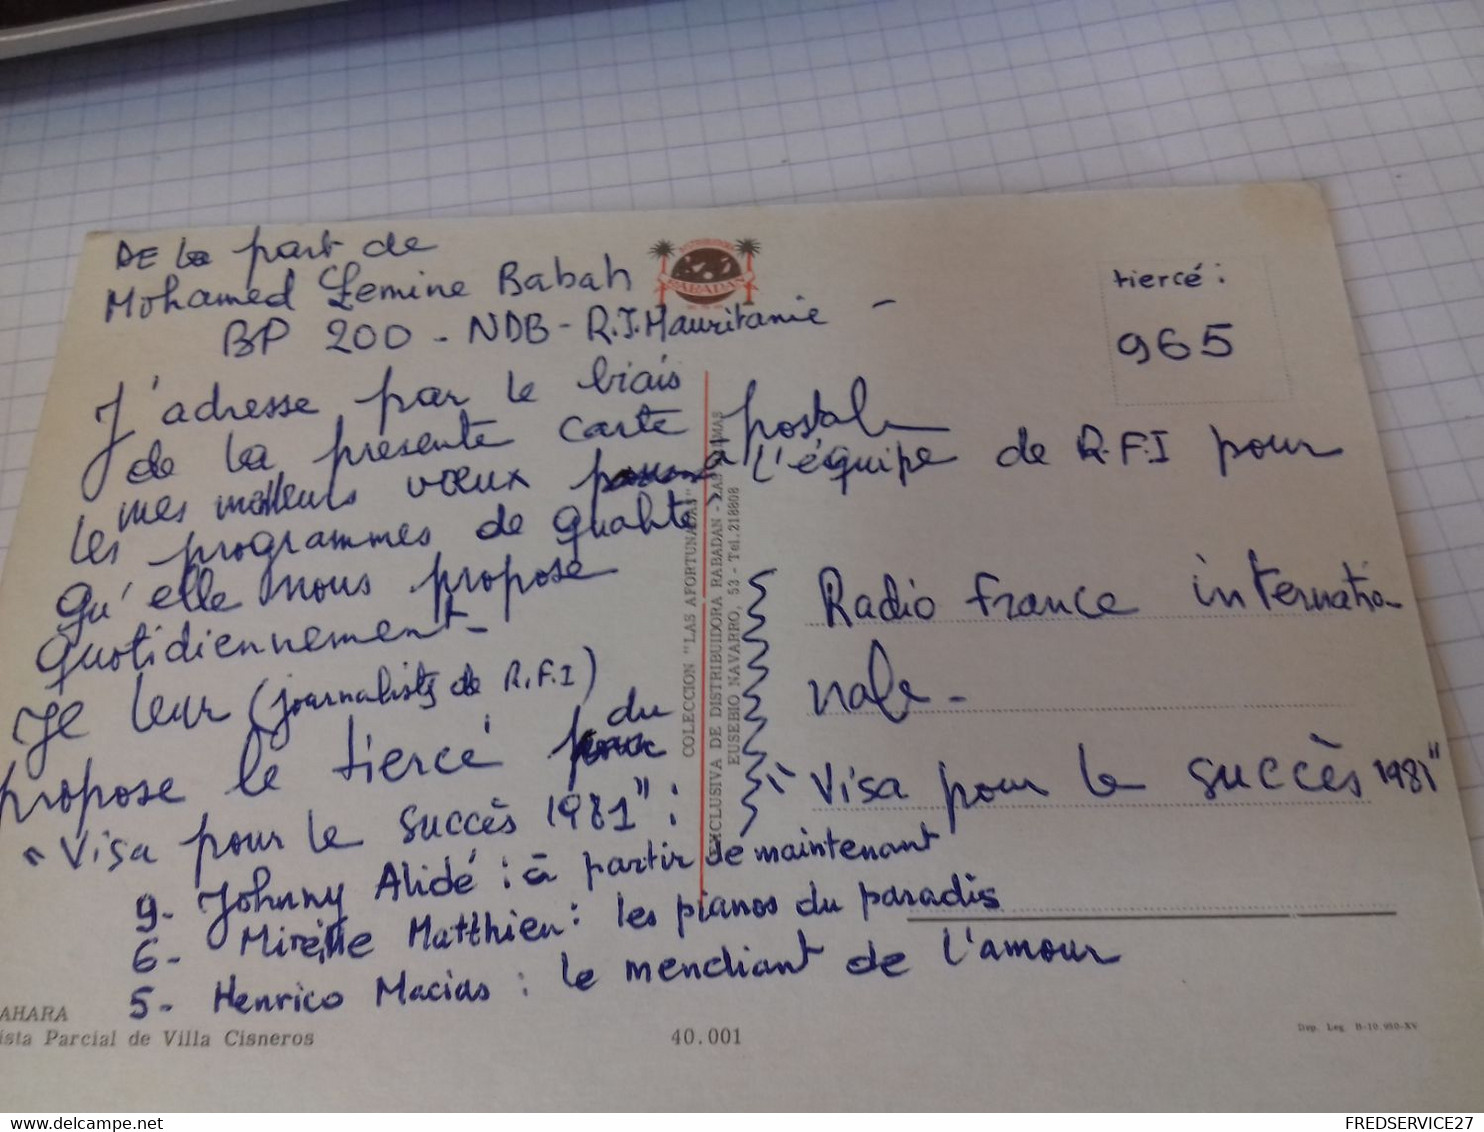 DE la part de
Mohamed Lemine Babah
BP 200 - NDB - R.I.Mauritanie -
J'adresse par le biais
de la présente carte postale
mes meilleurs vœux à l'équipe de R.F.I pour
les programmes de qualité
qu'elle nous propose
quotidiennement -
Je leur (journalistes de R.F.I)
propose le tiercé du
"Visa pour le succès 1981" :
9 - Johnny Alidé : à partir de maintenant
6 - Mireille Matthieu : les pianos du paradis
5 - Henrico Macias : le mendiant de l'amour
tiercé :
965
Radio France internatio-
nale -
"Visa pour le succès 1981"
RABADAN
COLECCION "LAS AFORTUNADAS"
EXCLUSIVA DE DISTRIBUIDORA RABADAN - LAS PALMAS
EUSEBIO NAVARRO, 53 - Tel. 218808
AHARA
ista Parcial de Villa Cisneros
40.001
Dep. Leg. B-10.980-XV
FREDSERVICE27